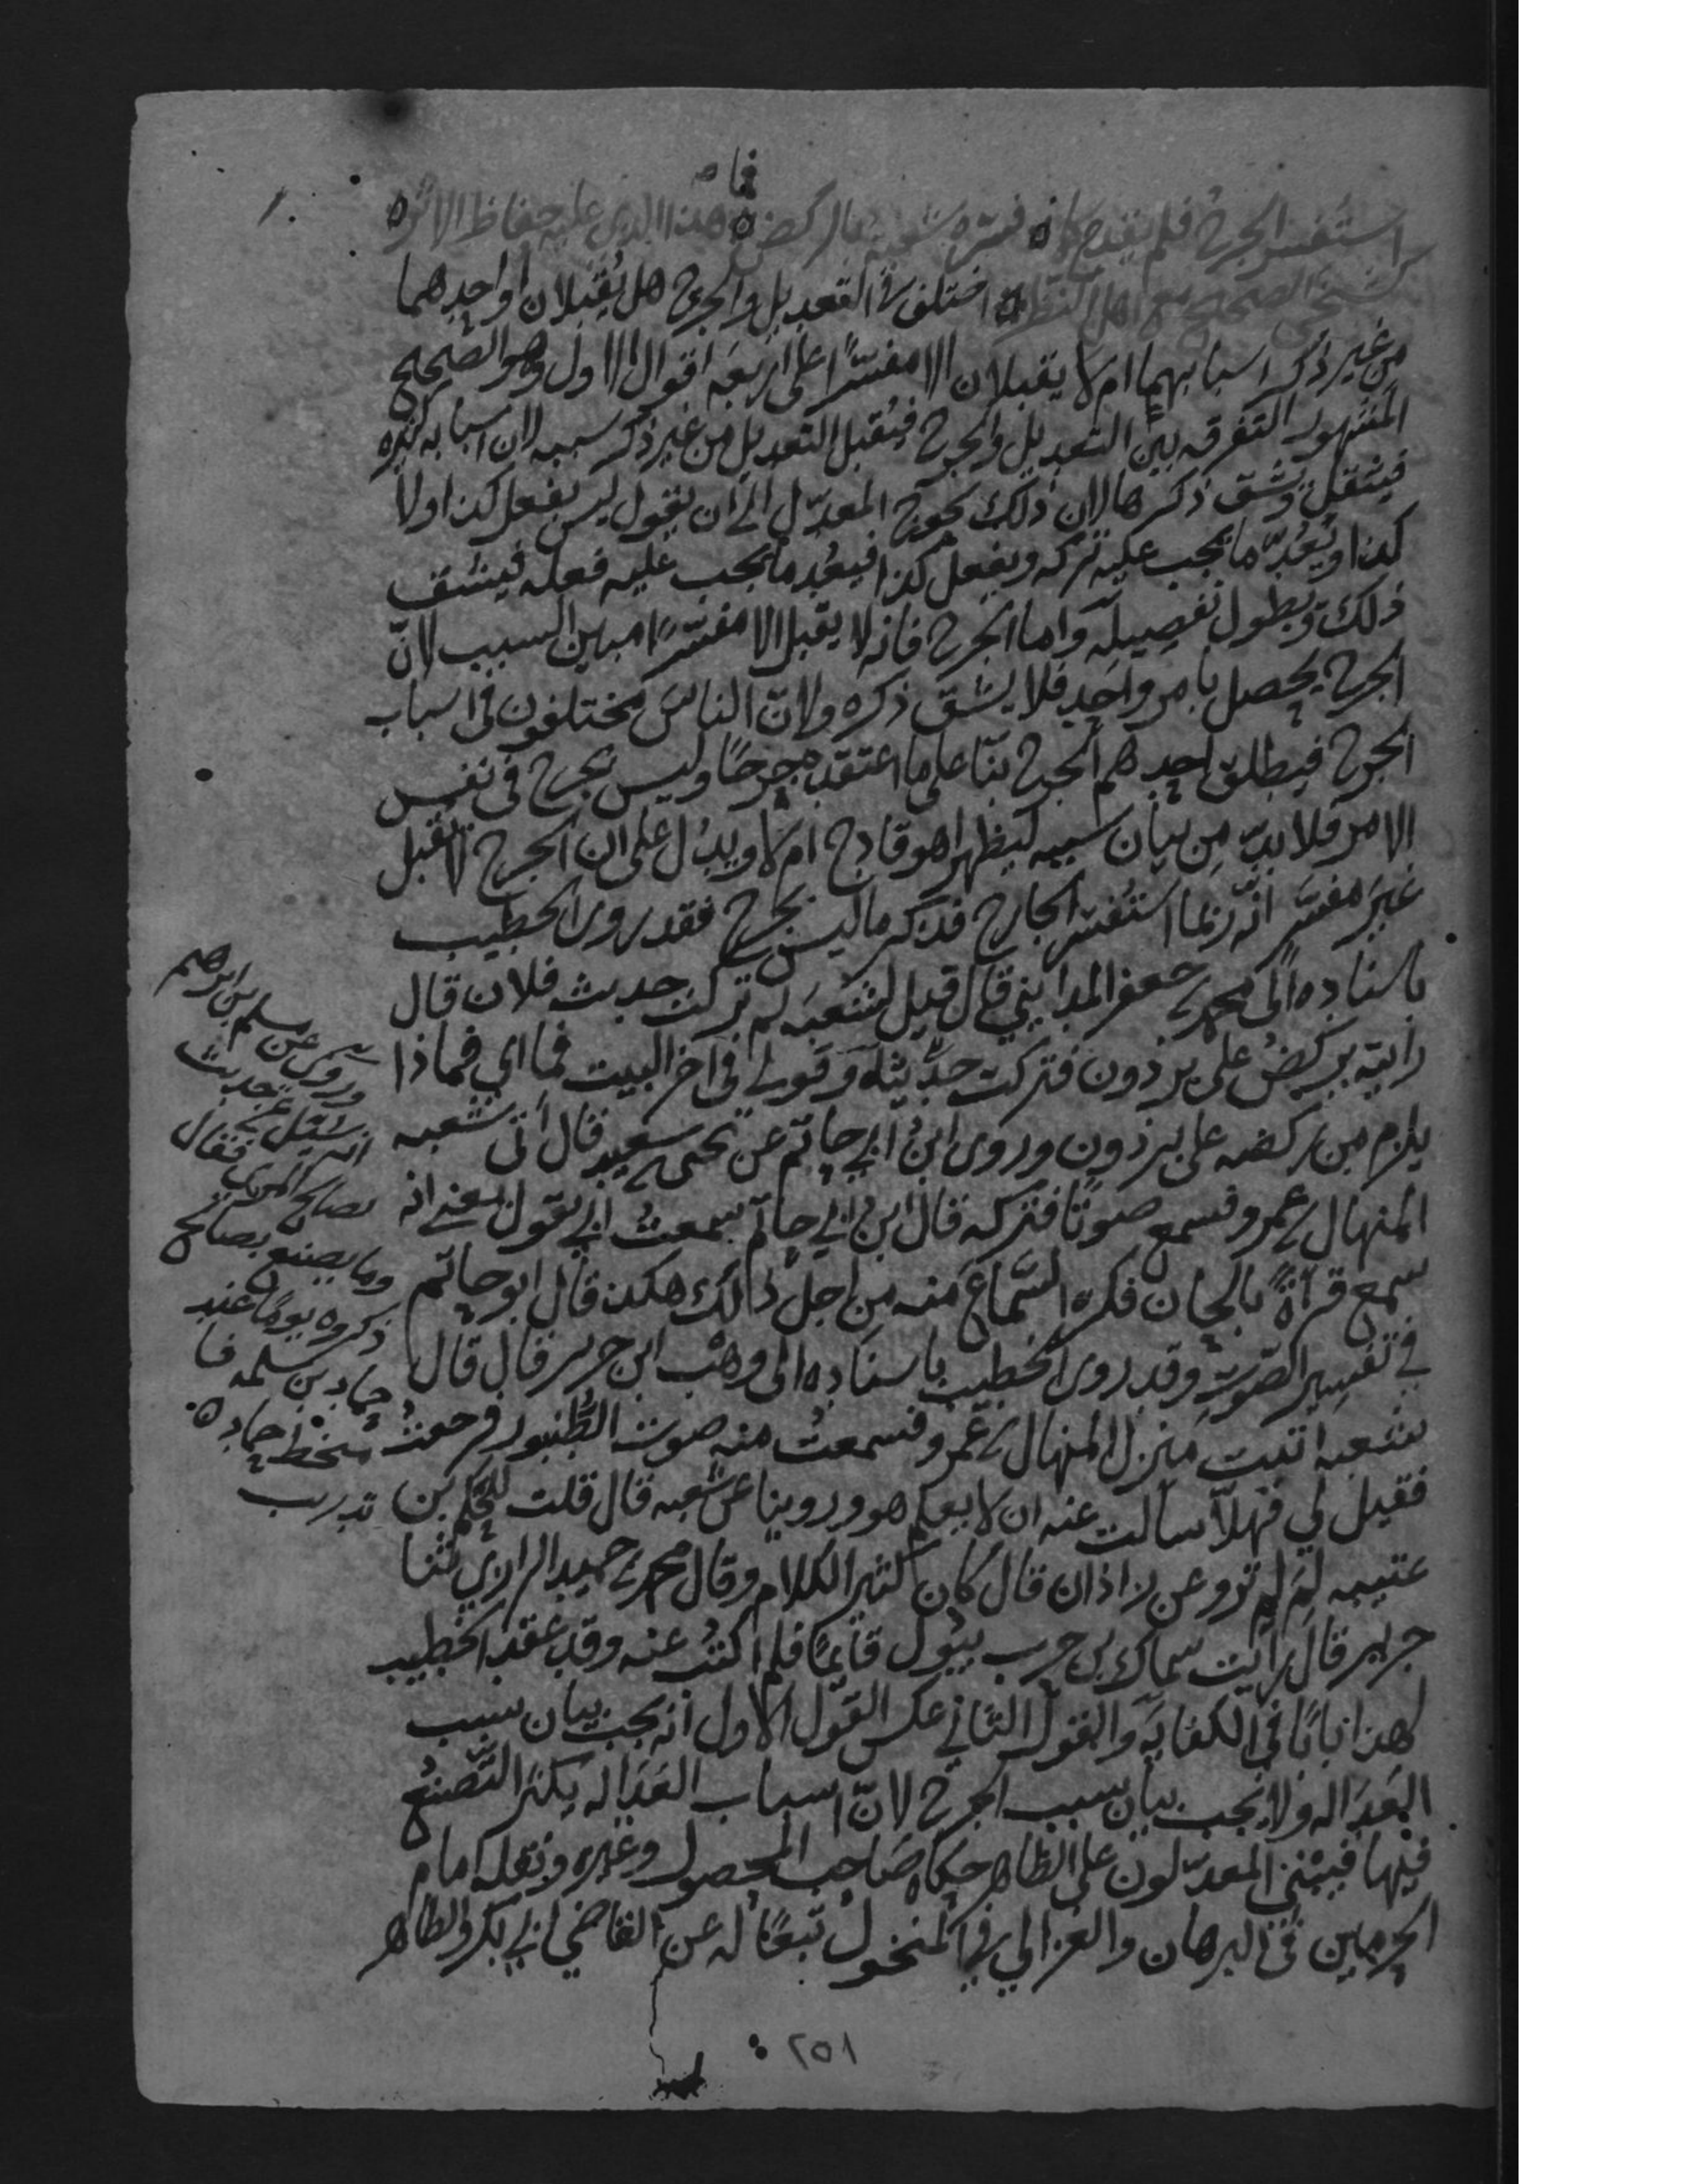 فما
استفسر الجرح فلم يقدح كما ه فسره شعبة بالركض ه هذا الذي عليه حفاظ الاثر ه
كشيخي الصحيح مع اهل النظر ه اختلف في التعديل والجرح هل يُقبلان او احدهما
من غير ذكر اسبابهما ام لا يقبلان الا مفسّرا على اربعة اقوال الاول وهو الصحيح
المشهور التفرقه بين التعديل والجرح فيُقبل التعديل من غير ذكر سببه لان اسبابه كثيره
فيثقل ويشق ذكرها لان ذلك يحوج المعدّل الى ان يقول ليس يفعل كذا ولا
كذا ويَعُدّ ما يجب عليه تركه ويفعل كذا فيعُد ما يجب عليه فعله فيشق
ذلك ويطول تفصيله واما الجرح فانه لا يقبل الا مفسّرًا مبين السبب لانّ
الجرح يحصل بامر واحد فلا يشق ذكره ولانّ الناس مختلفون في اسباب
الجرح فيطلق احدهم الجرح بناً على ما اعتقده جرحًا وليس بجرح في نفس
الامر فلا بدّ من بيان سببه ليظهر اهو قادح ام لا ويدُل على ان الجرح لا يقبل
غيرَ مفسّر انه ربما استُفسر الجارح فذكر ما ليس بجرح فقد روى الخطيب
باسناده الى محمد بن جعفر المدايني قال قيل لشعبة لم تركت حديث فلان قال
رايته يركضُ على برذون فتركت حديثه وقولي في اخر البيت فما اي فماذا
يلزم من ركضه على برذون وروى ابن ابي حاتم عن يحيى بن سعيد قال اتى شعبه
المنهال بن عمرو فسمع صوتًا فتركه قال ابن ابي حاتم سمعتُ ابي يقول يعني انه
سمع قراةً بالحان فكره السَّماعَ منه من اجل ذلك هكذا قال ابو حاتم
في تفسير الصّوت وقد روى الخطيب باسناده الى وهْب ابن جرير قال قال
شعبه اتيت منزل المنهال بن عمرو فسمعتُ منه صوت الطُّنبور فرجعتُ
فقيل لي فهلّا سالت عنه ان لا يعلم هو وروينا عن شعبه قال قلت للحكم بن
عتيبه لِمَ لم ترو عن زاذان قال كان كثير الكلام وقال محمد بن حميد الرازي ثنا
جرير قال رايت سماك بن حرب يبُول قايمًا فلم اكتبْ عنه وقد عقد الخطيب
لهذا بابًا في الكفايه والقول الثاني عكس القول الاول انه يجب بيان سبب
العدَاله ولا يجب بيان سبب الجرح لانّ اسباب العدَاله يكثر التَّصنعُ
فيها فيبْني المعدّلون على الظاهر حكاه صَاحب المحصول وغيره ونقله امام
الحرمين في البرهان والغزالي في المنخول تبعًا له عن القاضي ابي بكر والظاهر
وروى عن مسلم بن ابرهيم
انه سُئل عن حديث
لصالح المري فقال
وما يصنع بصالح
ذكروه يومًا عند
حماد بن سلمه فا
متخط حماد ه
تدريب
٢٥١